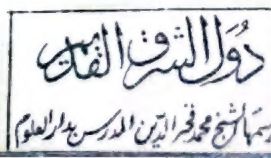 دول الشرق القديم
رسمها الشيخ محمد فخر الدين المدرس بدار العلوم